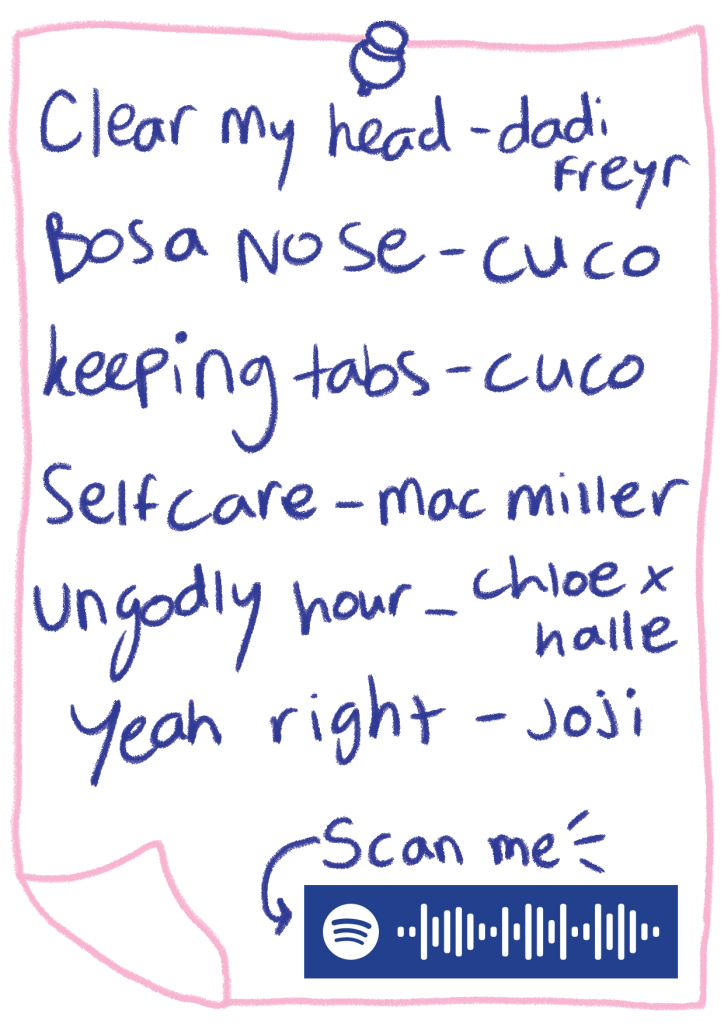 Clear my head - dadi
Freyr
Bosa Nose - cuco
keeping tabs - cuco
Selfcare - mac miller
ungodly hour - chloe x
halle
Yeah right - joji
Scan me